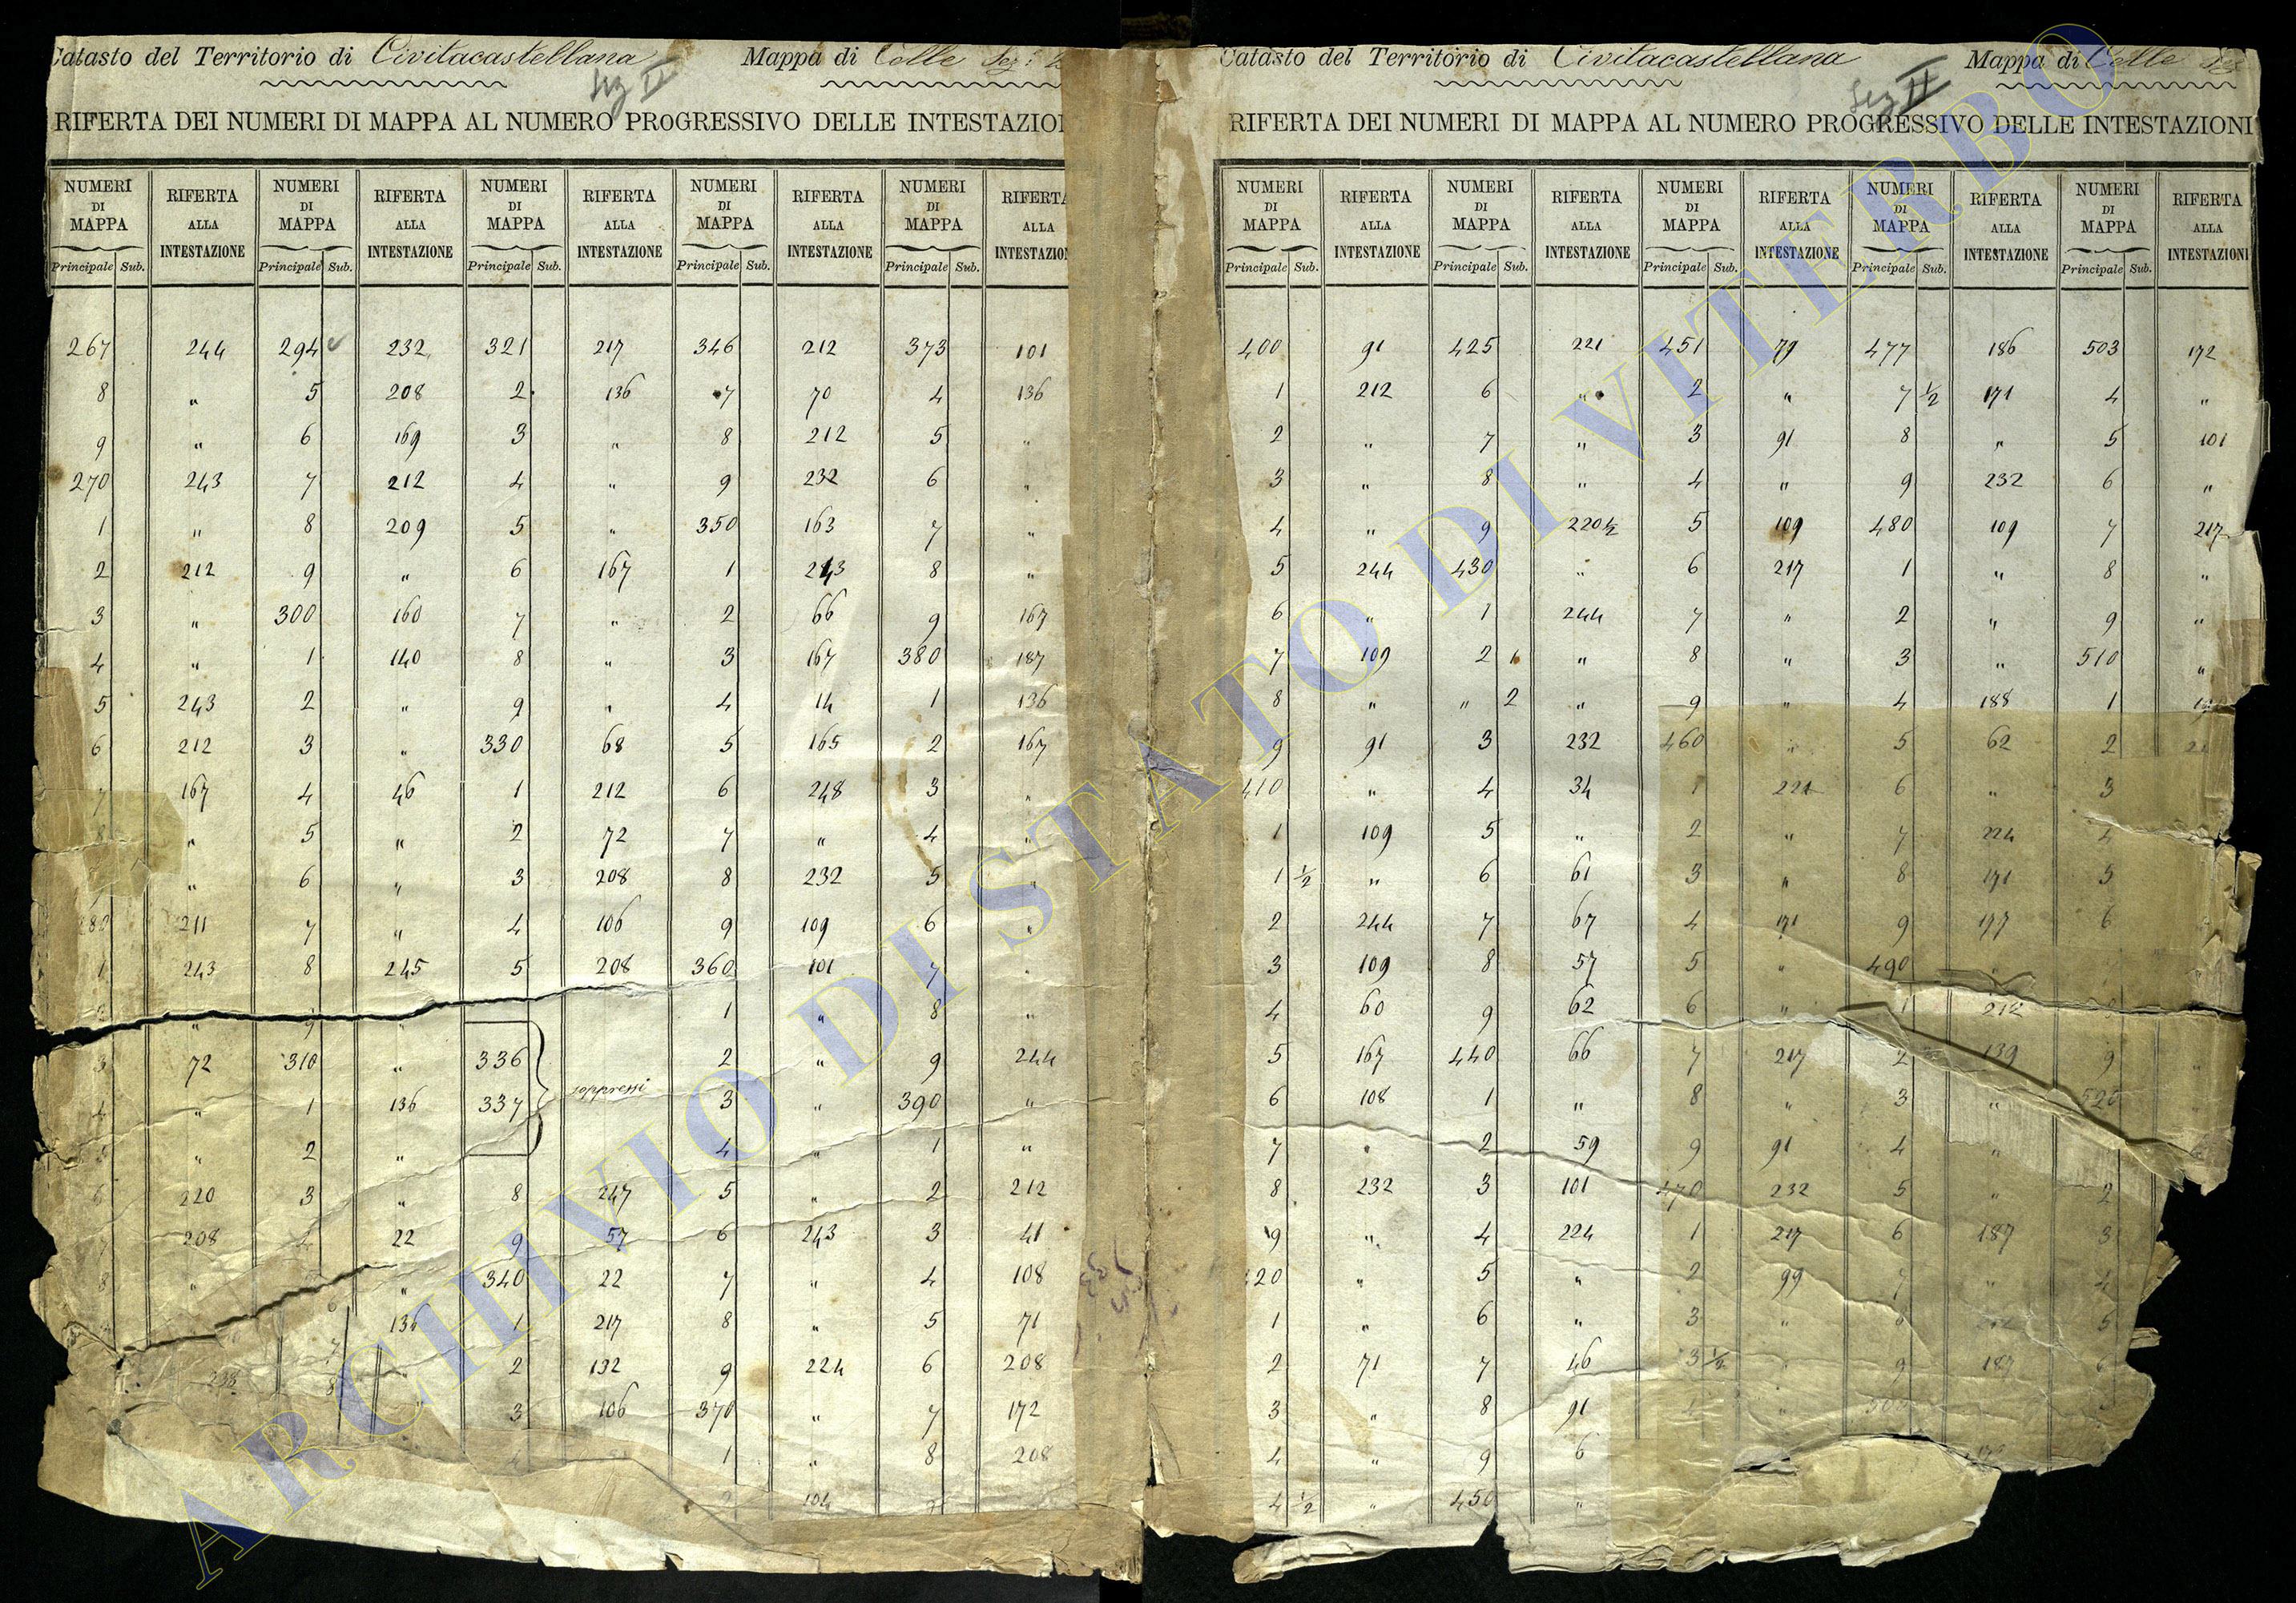 Catasto del Territorio di Civitacastellana Mappa di Colle Sez:
Sez II
RIFERTA DEI NUMERI DI MAPPA AL NUMERO PROGRESSIVO DELLE INTESTAZIO
NUMERI DI MAPPA RIFERTA ALLA INTESTAZIONE NUMERI DI MAPPA RIFERTA ALLA INTESTAZIONE NUMERI DI MAPPA RIFERTA ALLA INTESTAZIONE NUMERI DI MAPPA RIFERTA ALLA INTESTAZIONE NUMERI DI MAPPA RIFERTA ALLA INTESTAZION
Principale Sub. Principale Sub. Principale Sub. Principale Sub. Principale Sub.
267 244 294 232 321 217 346 212 373 101
8 „ 5 208 2 136 7 70 4 136
9 „ 6 169 3 „ 8 212 5 „
270 243 7 212 4 „ 9 232 6 „
1 „ 8 209 5 „ 350 163 7 „
2 212 9 „ 6 167 1 243 8 „
3 „ 300 160 7 „ 2 66 9 167
4 „ 1 140 8 „ 3 167 380 187
5 243 2 „ 9 „ 4 14 1 136
6 212 3 „ 330 68 5 165 2 167
7 167 4 46 1 212 6 248 3 „
8 „ 5 „ 2 72 7 „ 4 „
„ 6 „ 3 208 8 232 5 „
280 211 7 „ 4 106 9 109 6 „
1 243 8 245 5 208 360 101 7 „
„ 9 „ 1 „ 8 „
3 72 310 „ 336 2 „ 9 244
4 „ 1 136 337 soppressi 3 „ 390 „
5 „ 2 „ 4 „ 1 „
6 220 3 „ 8 247 5 „ 2 212
7 208 4 22 9 57 6 243 3 41
8 „ „ 340 22 7 „ 4 108
6 136 1 217 8 „ 5 71
7 „ 2 132 9 224 6 208
238 8 „ 3 106 370 „ 7 172
1 „ 8 208
2 104
Catasto del Territorio di Civitacastellana Mappa di Colle Sez
Sez II
RIFERTA DEI NUMERI DI MAPPA AL NUMERO PROGRESSIVO DELLE INTESTAZIONI
NUMERI DI MAPPA RIFERTA ALLA INTESTAZIONE NUMERI DI MAPPA RIFERTA ALLA INTESTAZIONE NUMERI DI MAPPA RIFERTA ALLA INTESTAZIONE NUMERI DI MAPPA RIFERTA ALLA INTESTAZIONE NUMERI DI MAPPA RIFERTA ALLA INTESTAZIONI
Principale Sub. Principale Sub. Principale Sub. Principale Sub. Principale Sub.
400 91 425 221 451 79 477 186 503 172
1 212 6 „ 2 „ 7 1/2 171 4 „
2 „ 7 „ 3 91 8 „ 5 101
3 „ 8 „ 4 „ 9 232 6 „
4 „ 9 220 1/2 5 109 480 109 7 217
5 244 430 „ 6 217 1 „ 8 „
6 „ 1 244 7 „ 2 „ 9 „
7 109 2 1 „ 8 „ 3 „ 510 „
8 „ „ 2 „ 9 „ 4 188 1
9 91 3 232 460 „ 5 62 2
410 „ 4 34 1 221 6 „ 3
1 109 5 „ 2 „ 7 224 4
1 1/2 „ 6 61 3 „ 8 171 5
2 244 7 67 4 171 9 197 6
3 109 8 57 5 „ 490 „
4 60 9 62 6 „ 1 212
5 167 440 66 7 217 2 139 9
6 108 1 „ 8 „ 3 „ 520
7 „ 2 59 9 91 4 „
8 232 3 101 470 232 5 „ 2
9 „ 4 224 1 217 6 187 3
420 „ 5 „ 2 99 7 „ 4
1 „ 6 „ 3 „ 5
2 71 7 46 3 1/2 „ 9 187 6
3 „ 8 91 „
4 „ 9 6
4 1/2 „ 450 „
ARCHIVIO DI STATO DI VITERBO